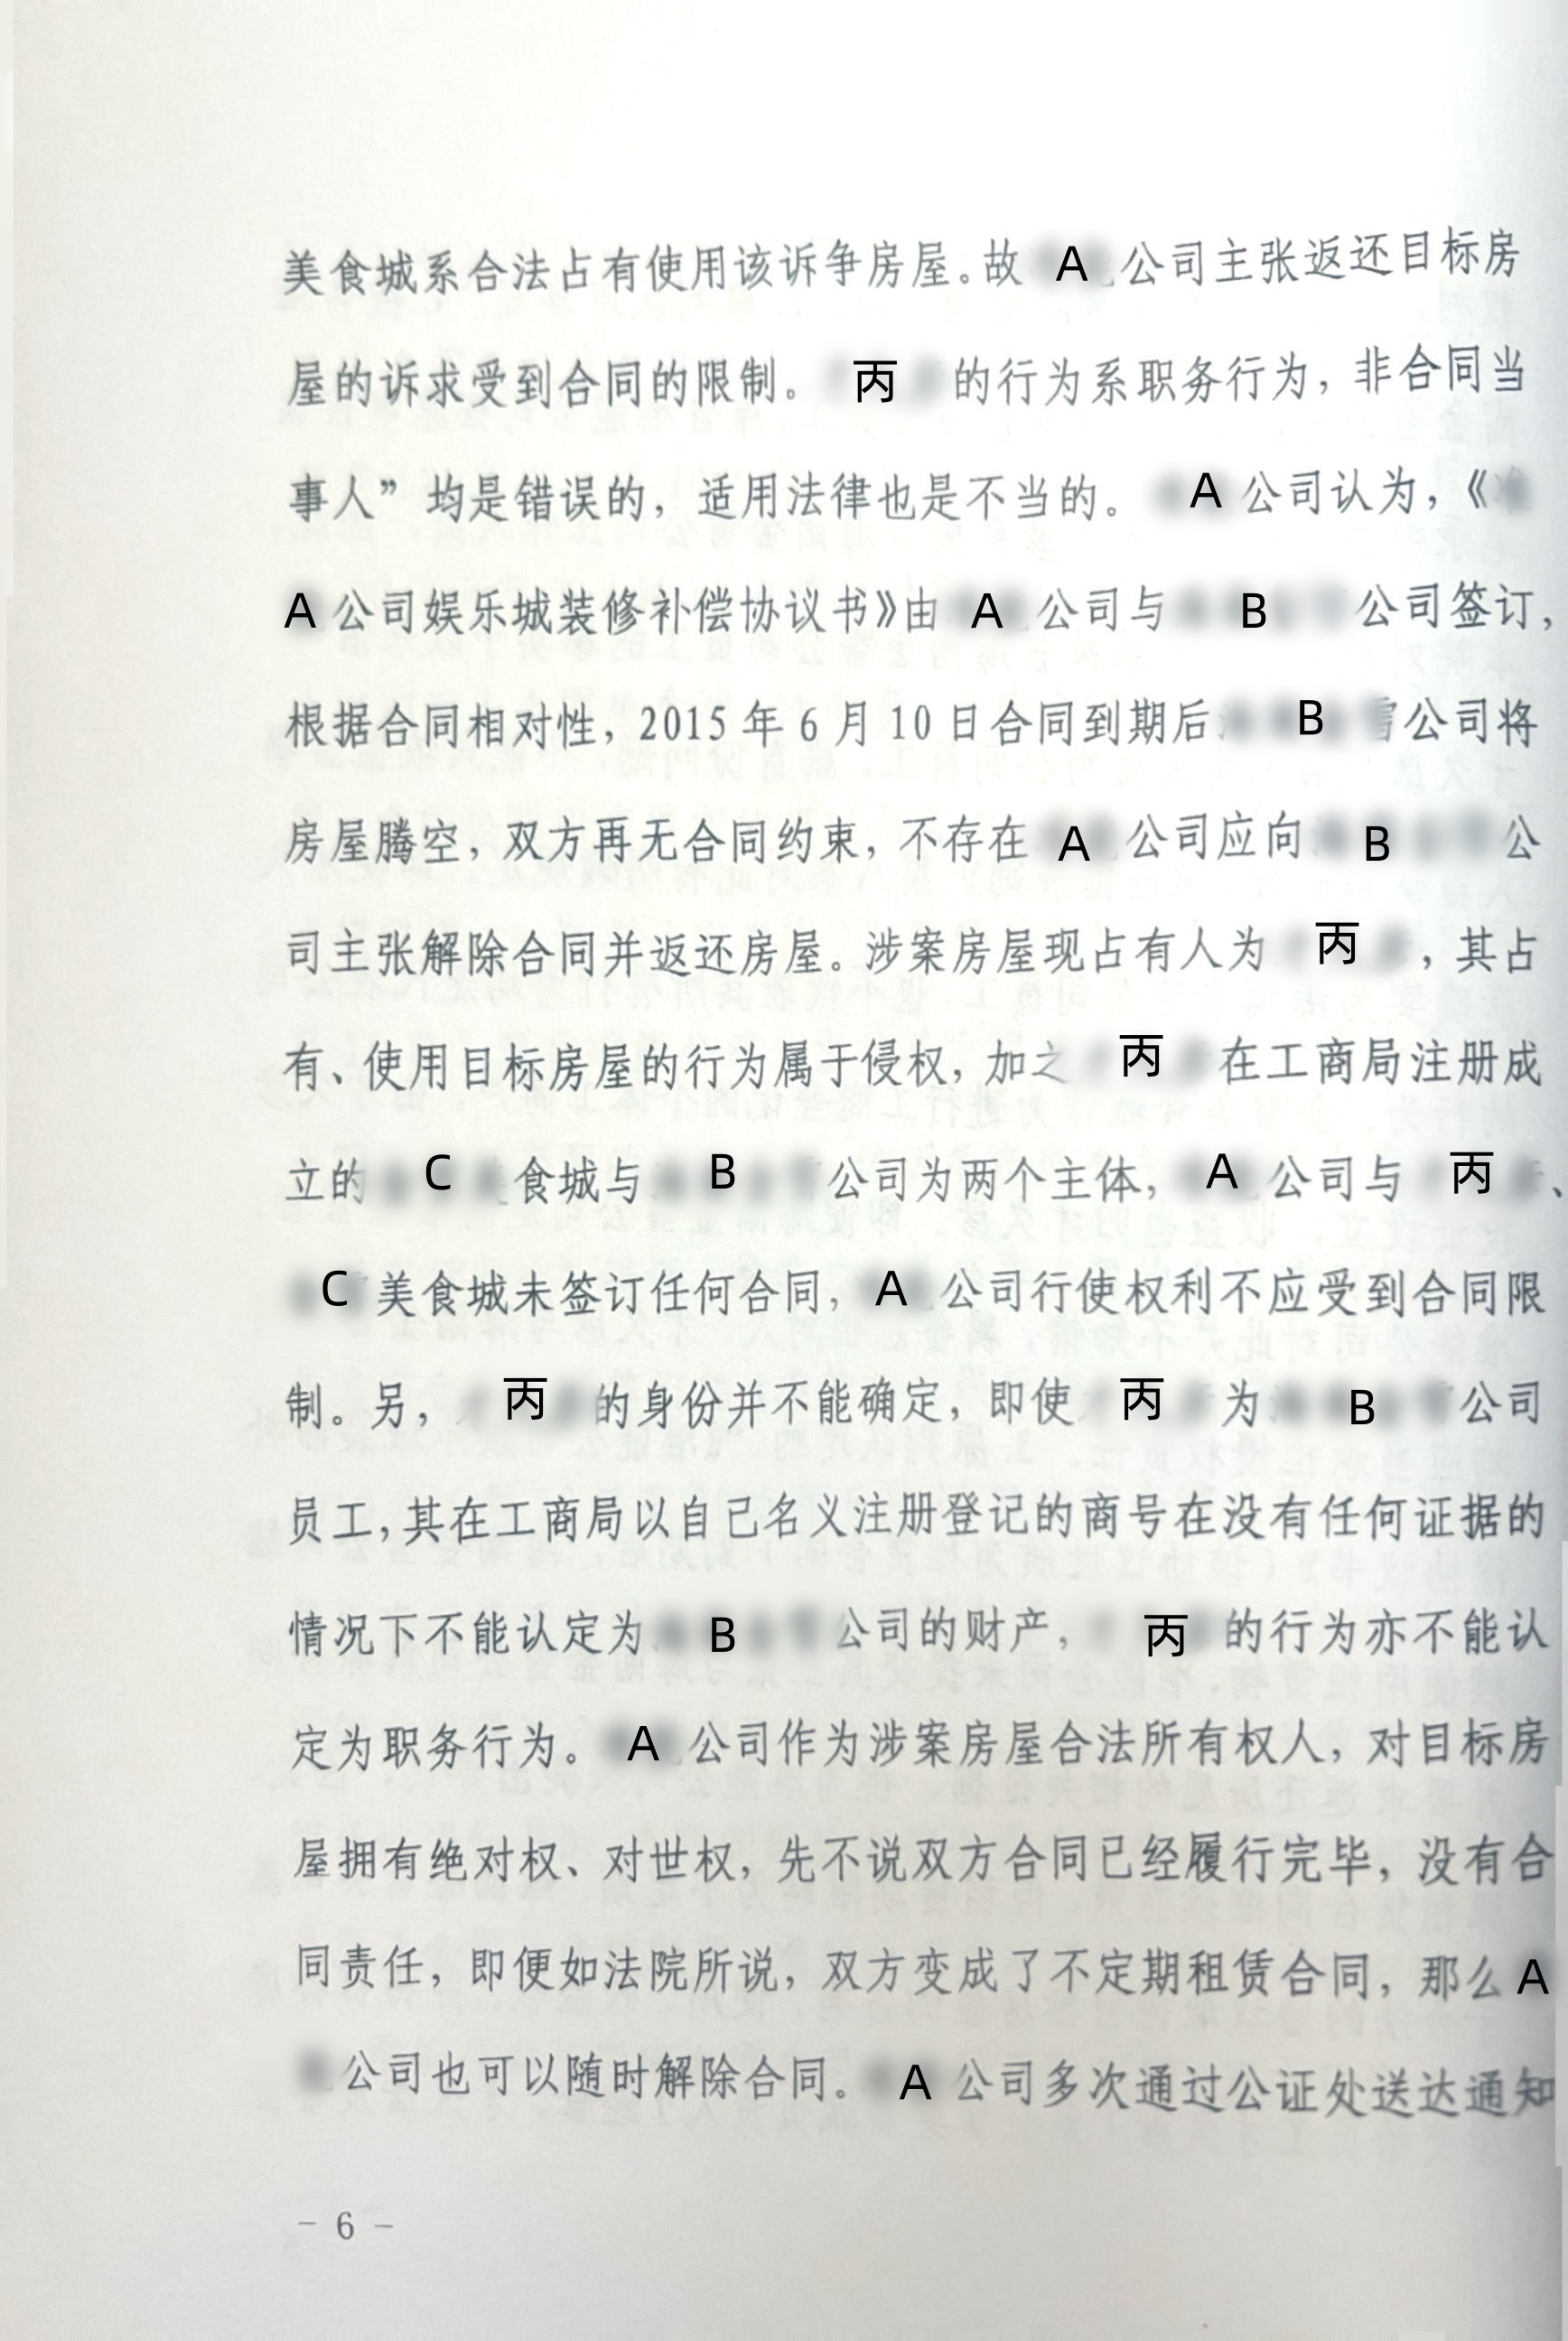 美食城系合法占有使用该诉争房屋。故A公司主张返还目标房
屋的诉求受到合同的限制。丙的行为系职务行为，非合同当
事人”均是错误的，适用法律也是不当的。A公司认为，《
A公司娱乐城装修补偿协议书》由A公司与B公司签订，
根据合同相对性，2015年6月10日合同到期后B公司将
房屋腾空，双方再无合同约束，不存在A公司应向B公
司主张解除合同并返还房屋。涉案房屋现占有人为丙，其占
有、使用目标房屋的行为属于侵权，加之丙在工商局注册成
立的C美食城与B公司为两个主体，A公司与丙、
C美食城未签订任何合同，A公司行使权利不应受到合同限
制。另，丙的身份并不能确定，即使丙为B公司
员工，其在工商局以自己名义注册登记的商号在没有任何证据的
情况下不能认定为B公司的财产，丙的行为亦不能认
定为职务行为。A公司作为涉案房屋合法所有权人，对目标房
屋拥有绝对权、对世权，先不说双方合同已经履行完毕，没有合
同责任，即便如法院所说，双方变成了不定期租赁合同，那么A
公司也可以随时解除合同。A公司多次通过公证处送达通知
- 6 -